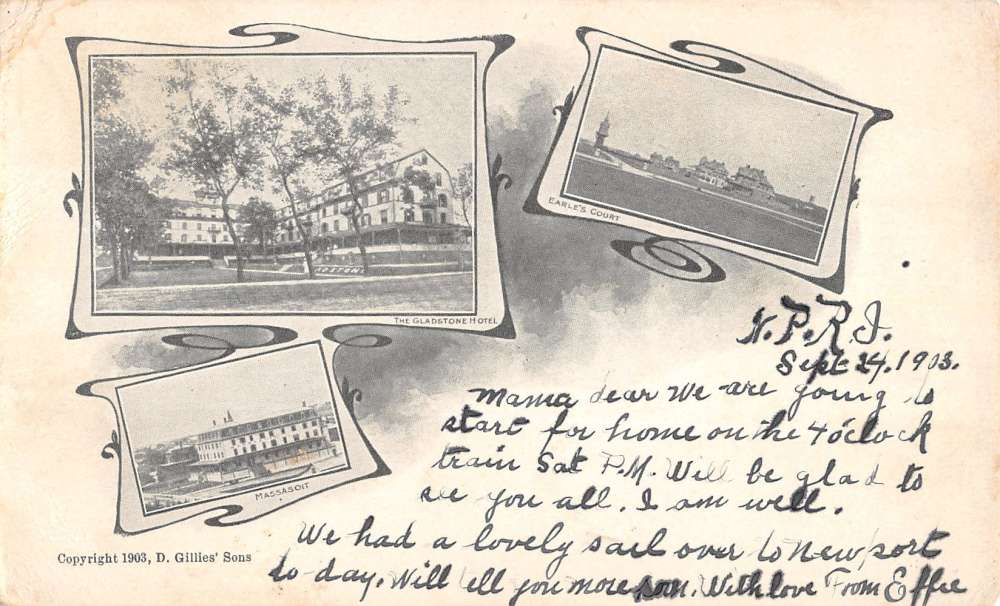 THE GLADSTONE HOTEL
EARLE'S COURT
MASSASOIT
Copyright 1903, D. Gillies' Sons
N.P.R.I.
Sept 24. 1903.
Mama dear We are going to
start for home on the 4 o'clock
train Sat P.M. Will be glad to
see you all. I am well.
We had a lovely sail over to Newport
to-day. Will tell you more soon. With love From Effie